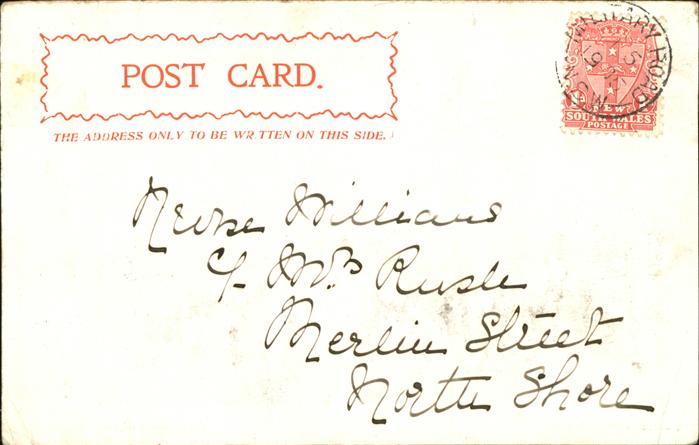 POST CARD.
THE ADDRESS ONLY TO BE WRITTEN ON THIS SIDE.
MILITARY ROAD
N.S.W
NEW
SOUTH WALES
POSTAGE
Nurse Williams
c/- Mrs Rush
Merlin Street
North Shore